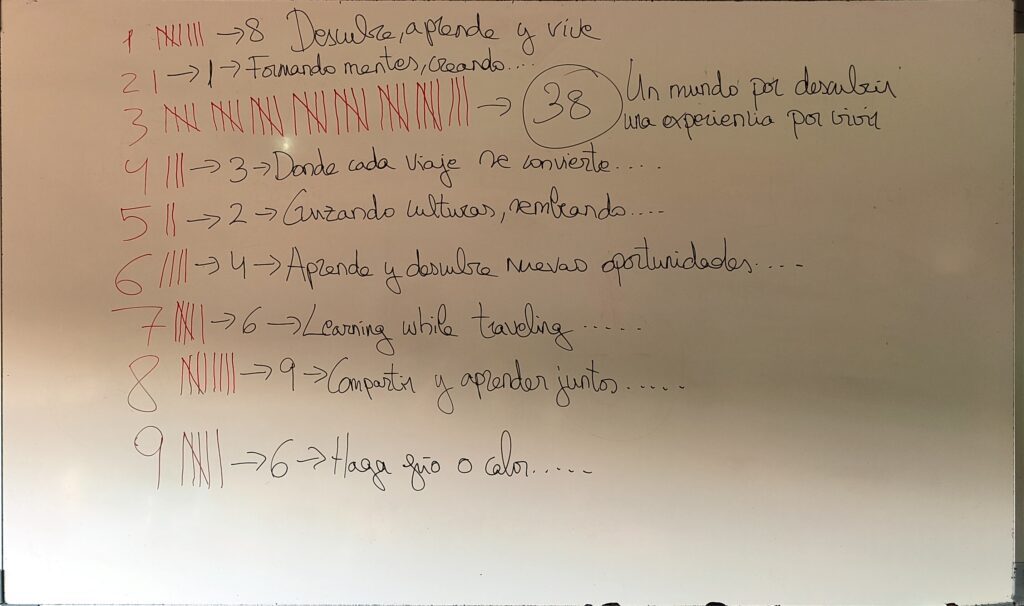 1 →8 Descubre, aprende y vive
2 →1→Formando mentes, creando....
3 → 38 Un mundo por descubrir una experiencia por vivir
4 →3→Donde cada viaje se convierte.....
5 →2→Cruzando culturas, sembrando....
6 →4→Aprende y descubre nuevas oportunidades.....
7 →6→Learning while traveling ......
8 →9→Compartir y aprender juntos......
9 →6→Haga frío o calor......